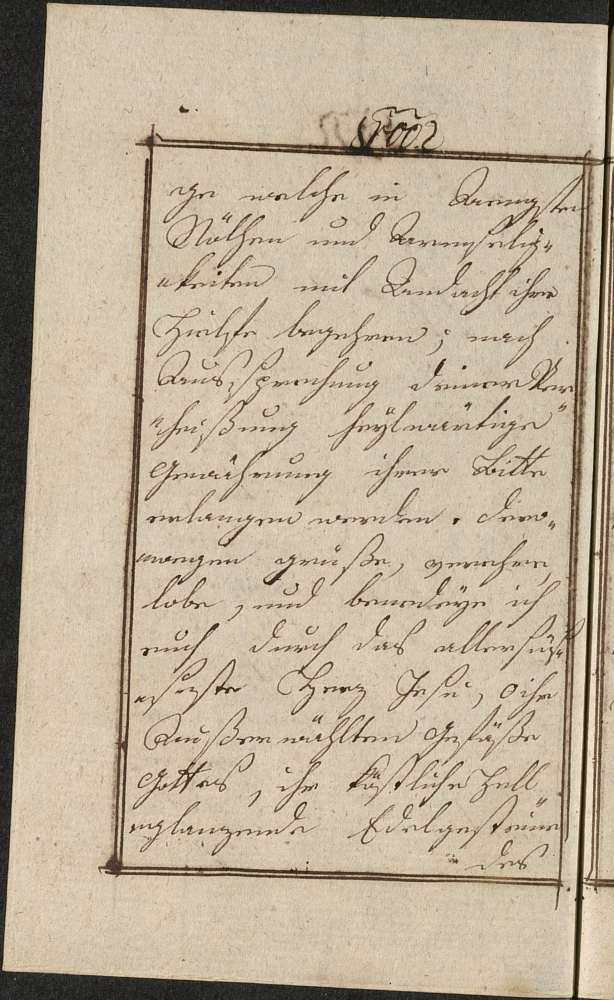 ge welche in Aengsten
Nöthen und Armseelig„
„keiten mit Andacht ihre
Hielffe begehren; nach
Ausssprechung deiner Ver
„heißung heylwürtige
Gewährung ihrer Bitte
erlangen werden. dero„
wegen grüße, verehre,
lobe, und benedeye ich
euch durch das allersüs„
„seste Herz Jesu, o ihr
Außerwählten Gefäße
Gottes, ihr köstliche hell
„glanzende Edelgesteine
des